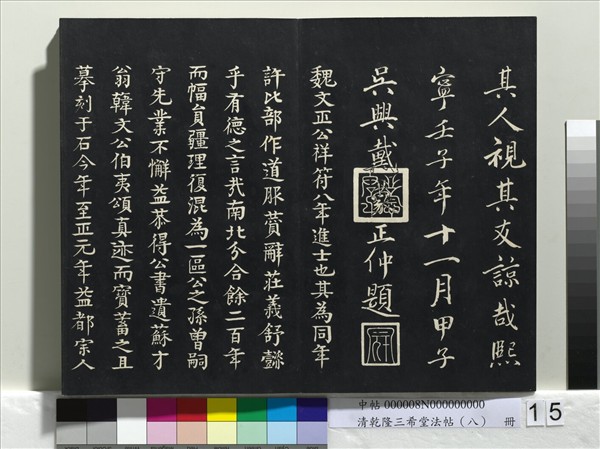 其人視其友諒哉熙
寧壬子年十一月甲子
吳興戴
正仲題
魏文正公祥符八年進士也其為同年
許比部作道服贊辭莊義舒繇
乎有德之言哉南北分合餘二百年
而幅員疆理復混為一區公之孫曾嗣
守先業不懈益恭得公書遺蘇才
翁韓文公伯夷頌真迹而寶蓄之且
摹刻于石今年至正元年益都宗人
中帖 000008N000000000
清乾隆三希堂法帖（八） 冊
15